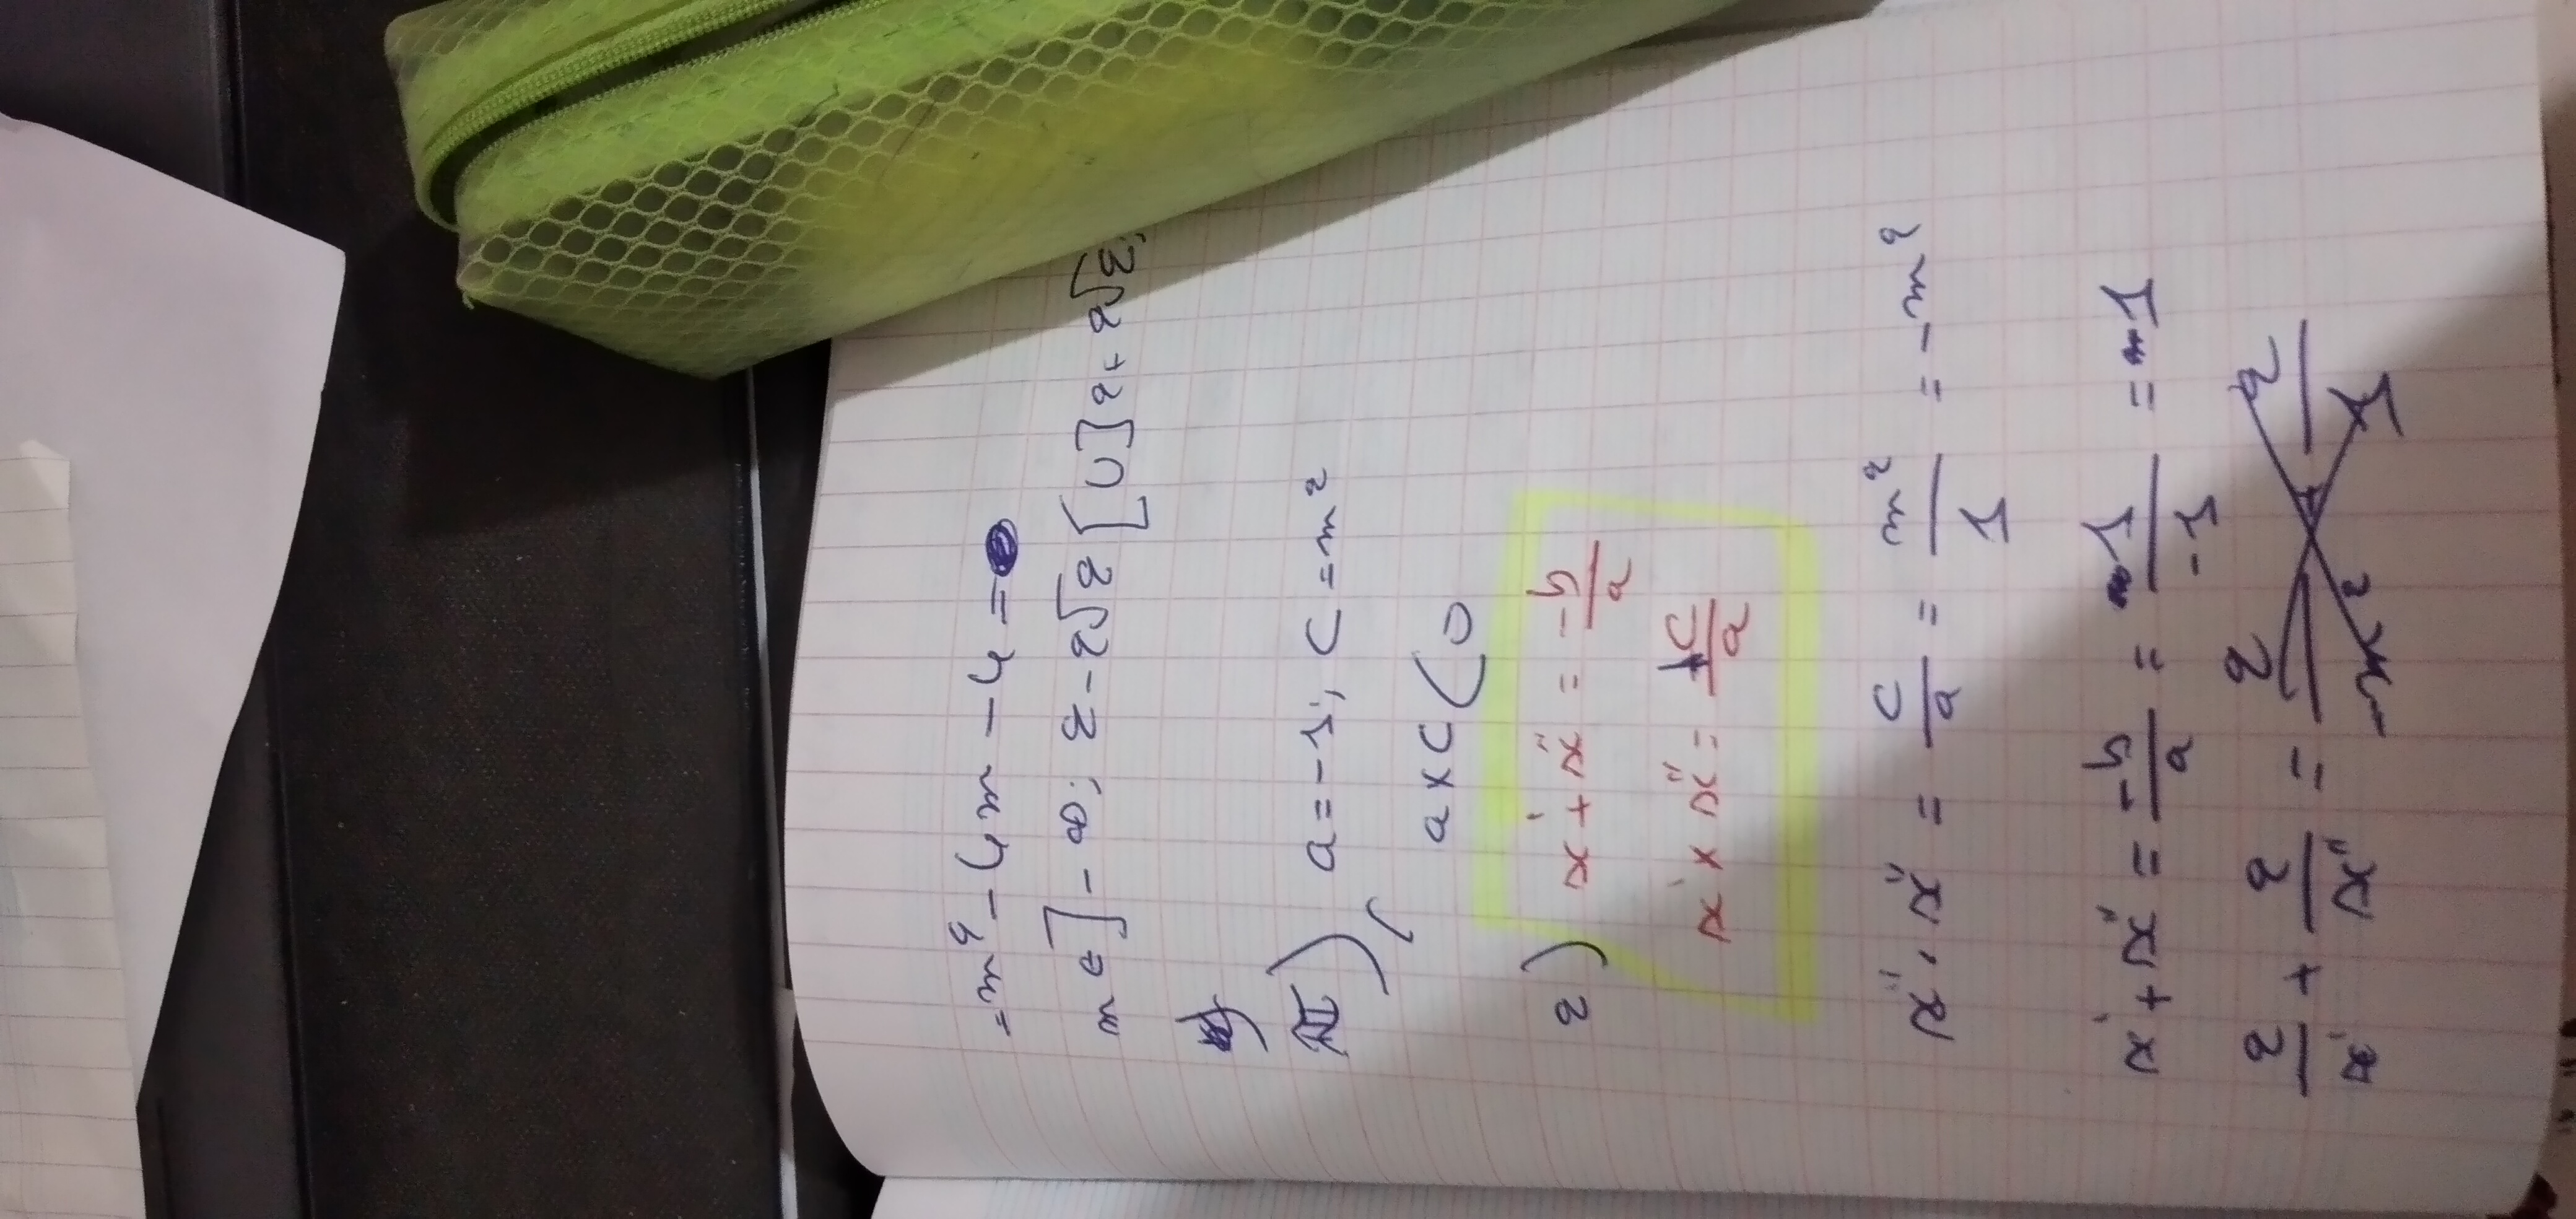 = m² - 4m - 4 = 
m ∈ ]-∞; 2-2√2[ U ]2+2√2;
II) a = -1, C = m²
a x C < 0
2) x' + x" = -b/a
x' x x" = C/a
x" . x" = C/a = m²/1 = -m²
x' + x" = -b/a = 1/-1 = -1
2/x' + 2/x" = 2/-m² 2/1